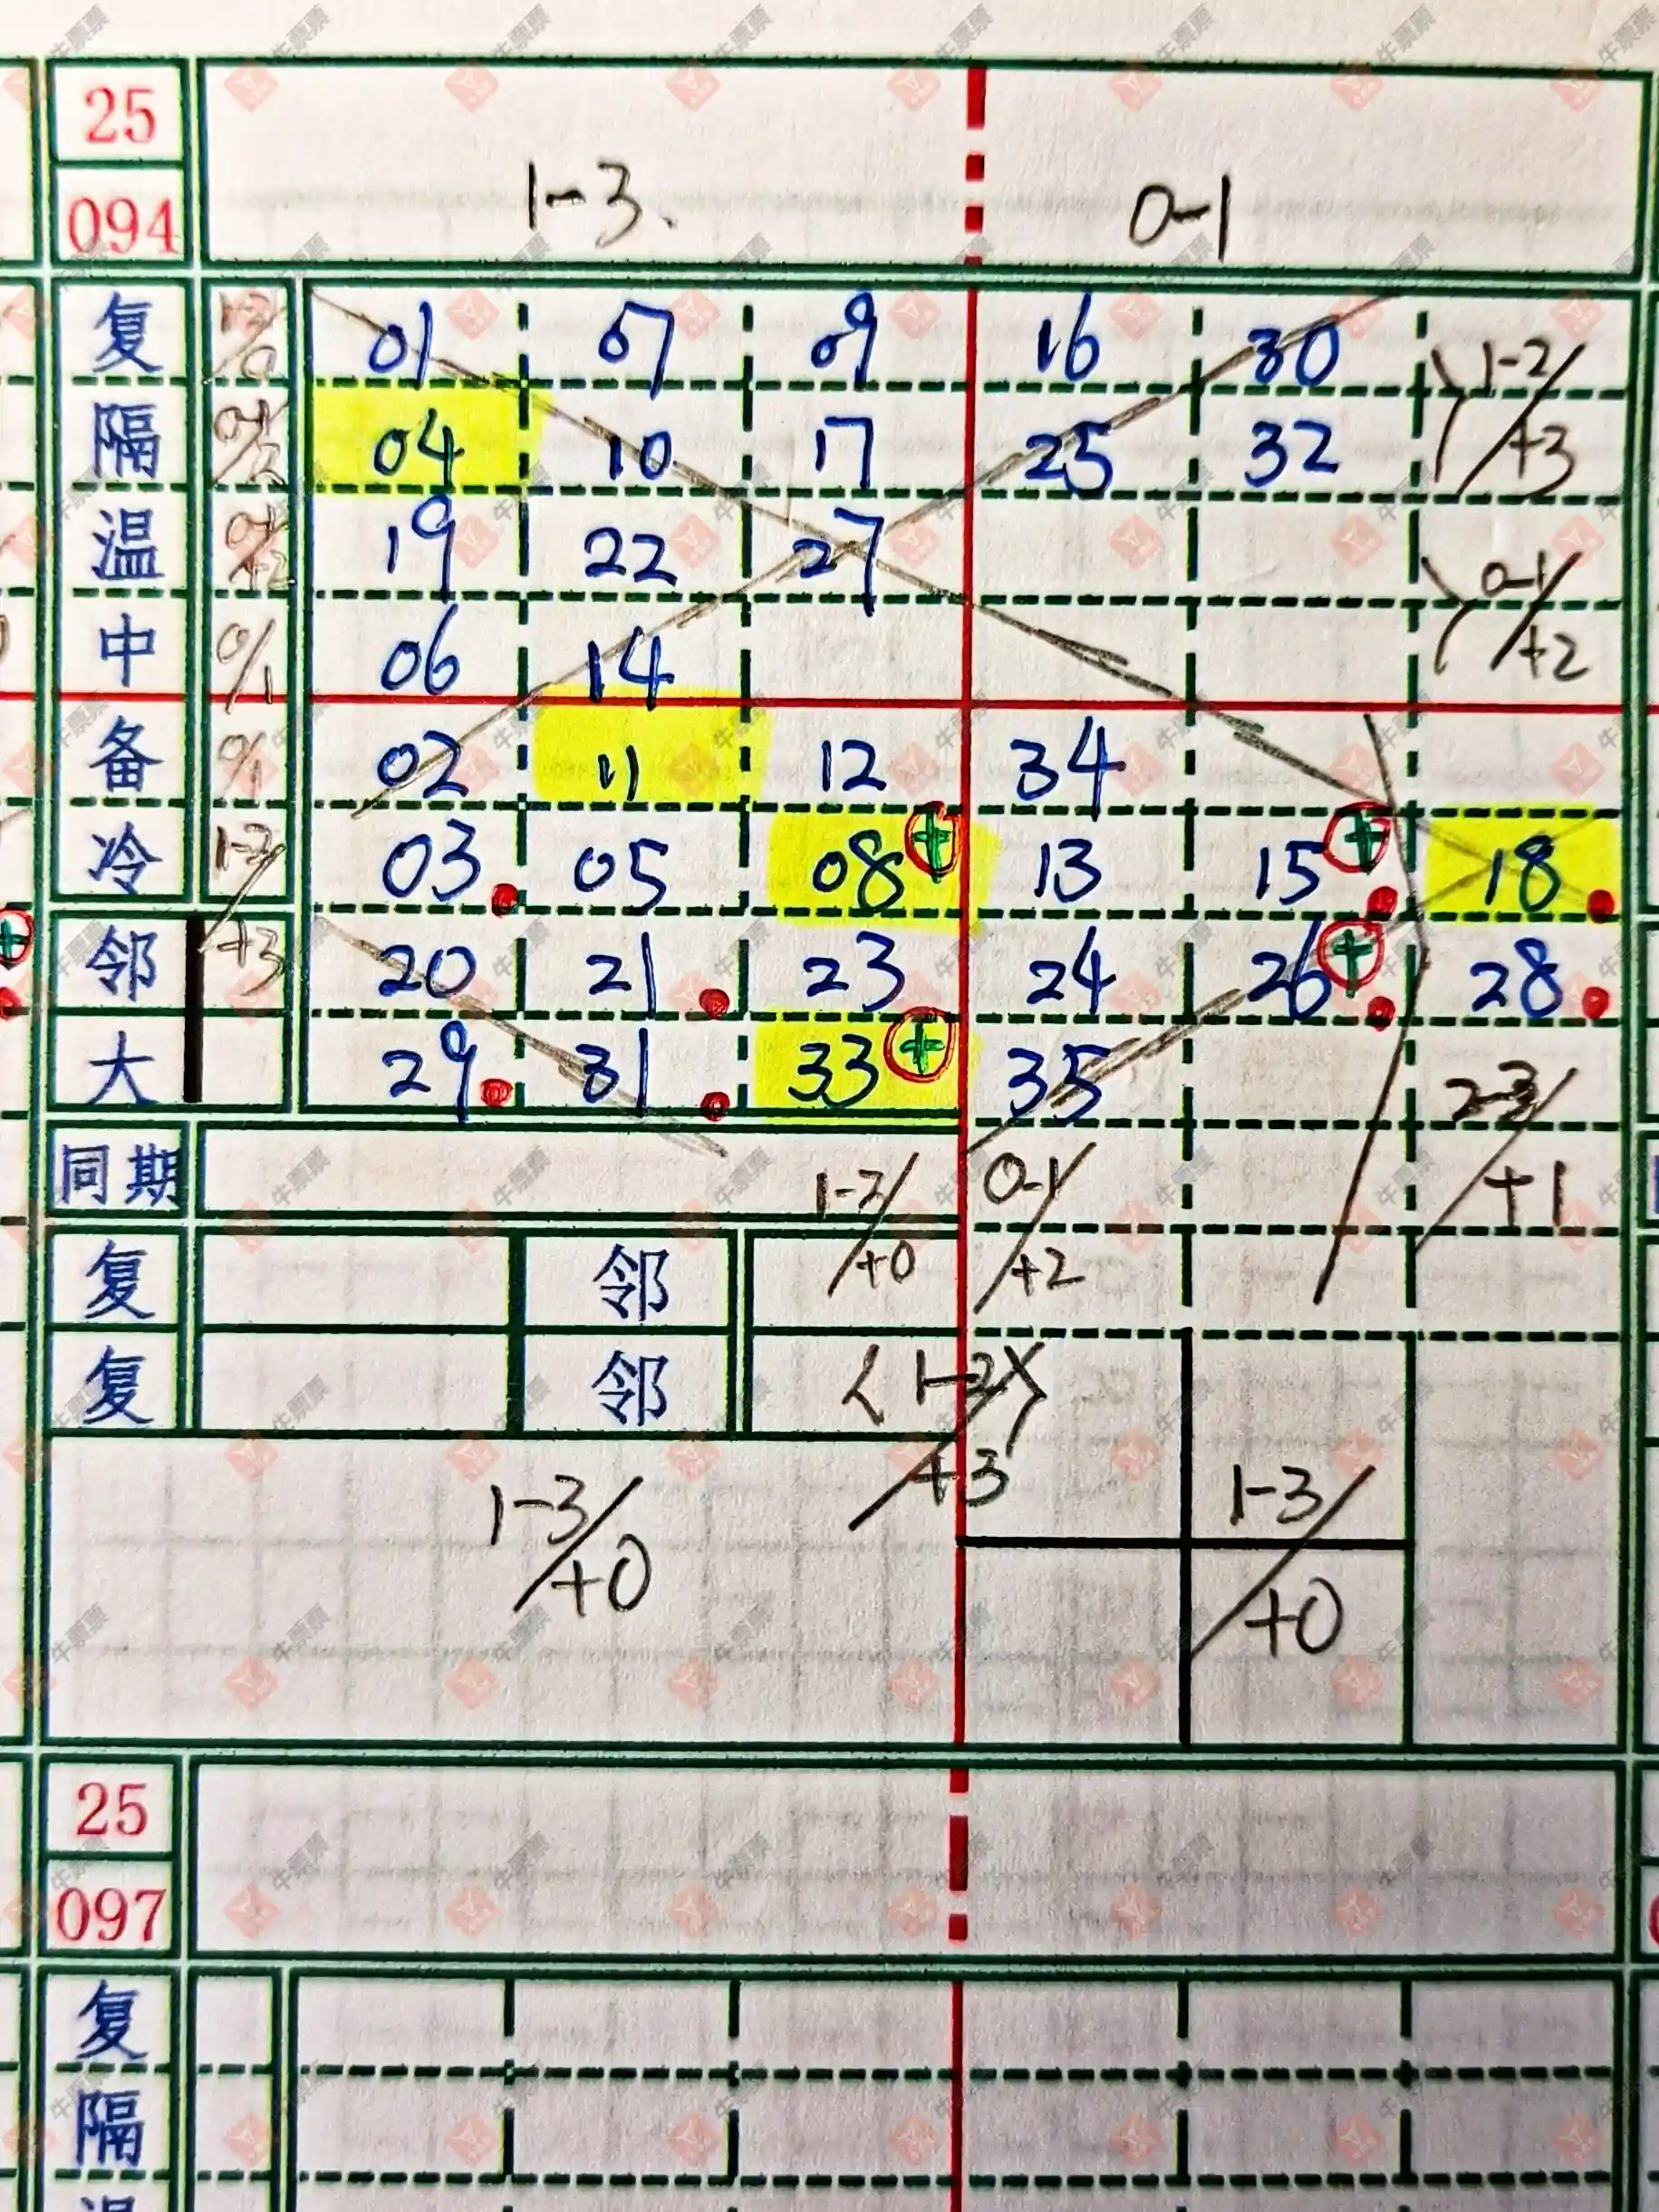 25
094 1-3. 0-1
复 01 07 09 16 30
1-2/+3
隔 04 10 17 25 32
温 19 22 27
0-1/+2
中 0/1 06 14
备 0/1 02 11 12 34
冷 03 05 08+ 13 15+ 18
邻 +3 20 21 23 24 26+ 28
大 29 31 33+ 35
同期 0-1/+2 +1
+0
复 邻
复 邻
+3
1-3/+0 1-3/+0
25
097
复
隔
温
牛票票